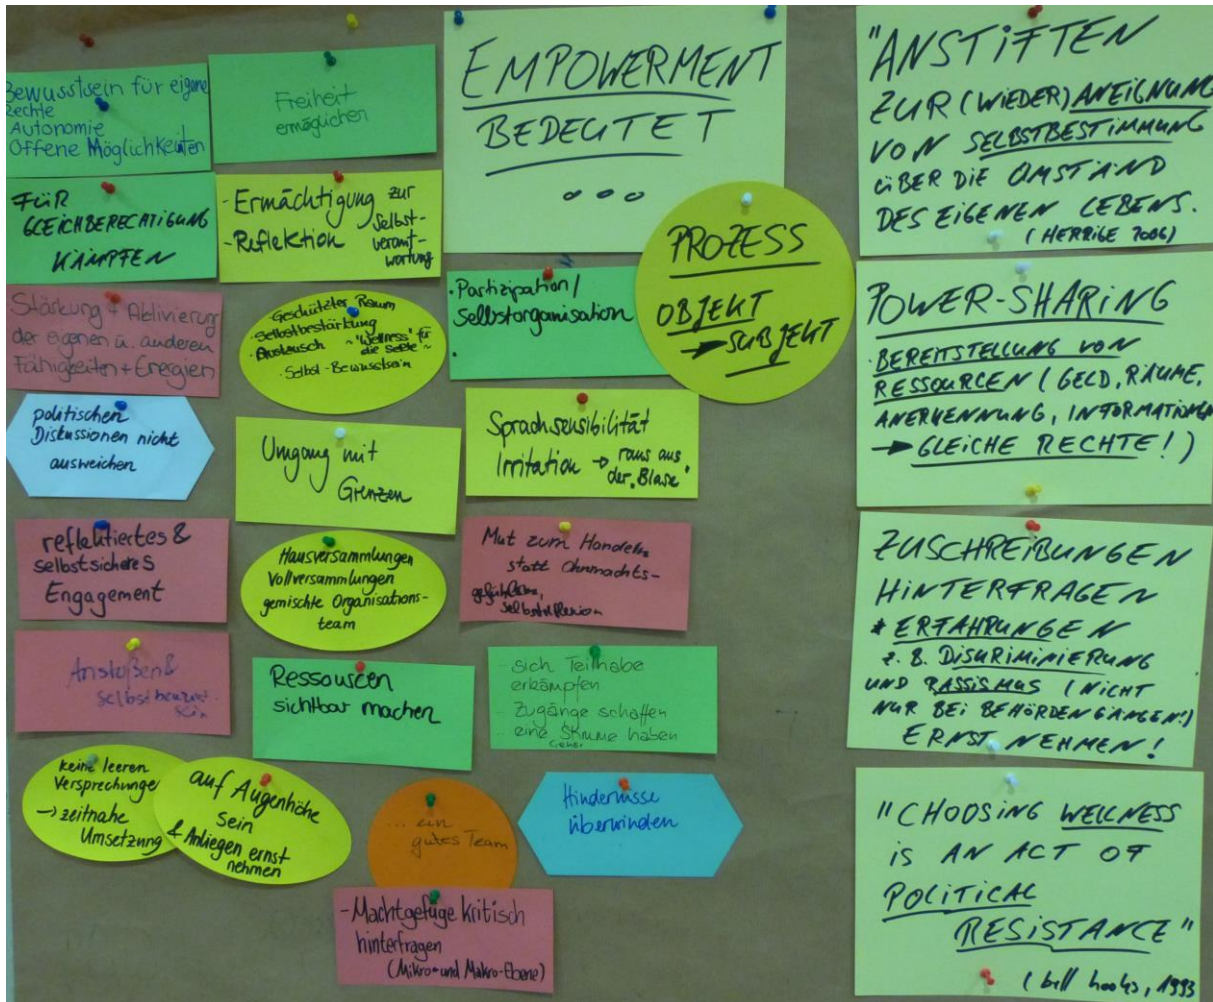 Bewusstsein für eigene
Rechte
Autonomie
Offene Möglichkeiten
Freiheit
ermöglichen
FÜR
GLEICHBERECHTIGUNG
KÄMPFEN
- Ermächtigung zur
Selbst-
verant-
wortung
- Reflektion
Stärkung + Aktivierung
der eigenen u. anderen
Fähigkeiten + Energien
Geschützter Raum
· Selbstbestärkung
· Austausch ~ "Wellness" für
die Seele ~
· Selbst-Bewusstsein
politischen
Diskussionen nicht
ausweichen
Umgang mit
Grenzen
reflektiertes &
selbstsicheres
Engagement
Hausversammlungen
Vollversammlungen
gemischte Organisations-
team
Anstoßen &
Ressourcen
sichtbar machen
keine leeren
Versprechungen
→ zeitnahe
Umsetzung
auf Augenhöhe
sein
& Anliegen ernst
nehmen
... ein
gutes Team
- Machtgefüge kritisch
hinterfragen
(Mikro- und Makro-Ebene)
EMPOWERMENT
BEDEUTET
...
PROZESS
OBJEKT
→ SUBJEKT
· Partizipation /
Selbstorganisation
·
Sprachsensibilität
Irritation → raus aus
der "Blase"
Mut zum Handeln
statt Ohnmachts-
- sich Teilhabe
erkämpfen
- Zugänge schaffen
- eine Stimme haben
Hindernisse
überwinden
"ANSTIFTEN
ZUR (WIEDER) ANEIGNUNG
VON SELBSTBESTIMMUNG
ÜBER DIE UMSTÄND
DES EIGENEN LEBENS.
(HERRIGE 2006)
POWER-SHARING
BEREITSTELLUNG VON
RESSOURCEN (GELD, RÄUME,
ANERKENNUNG, INFORMATIONEN
→ GLEICHE RECHTE!)
ZUSCHREIBUNGEN
HINTERFRAGEN
* ERFAHRUNGEN
z. B. DISKRIMINIERUNG
UND RASSISMUS (NICHT
NUR BEI BEHÖRDENGÄNGEN!)
ERNST NEHMEN!
"CHOOSING WELLNESS
IS AN ACT OF
POLITICAL
RESISTANCE"
(bell hooks, 1993